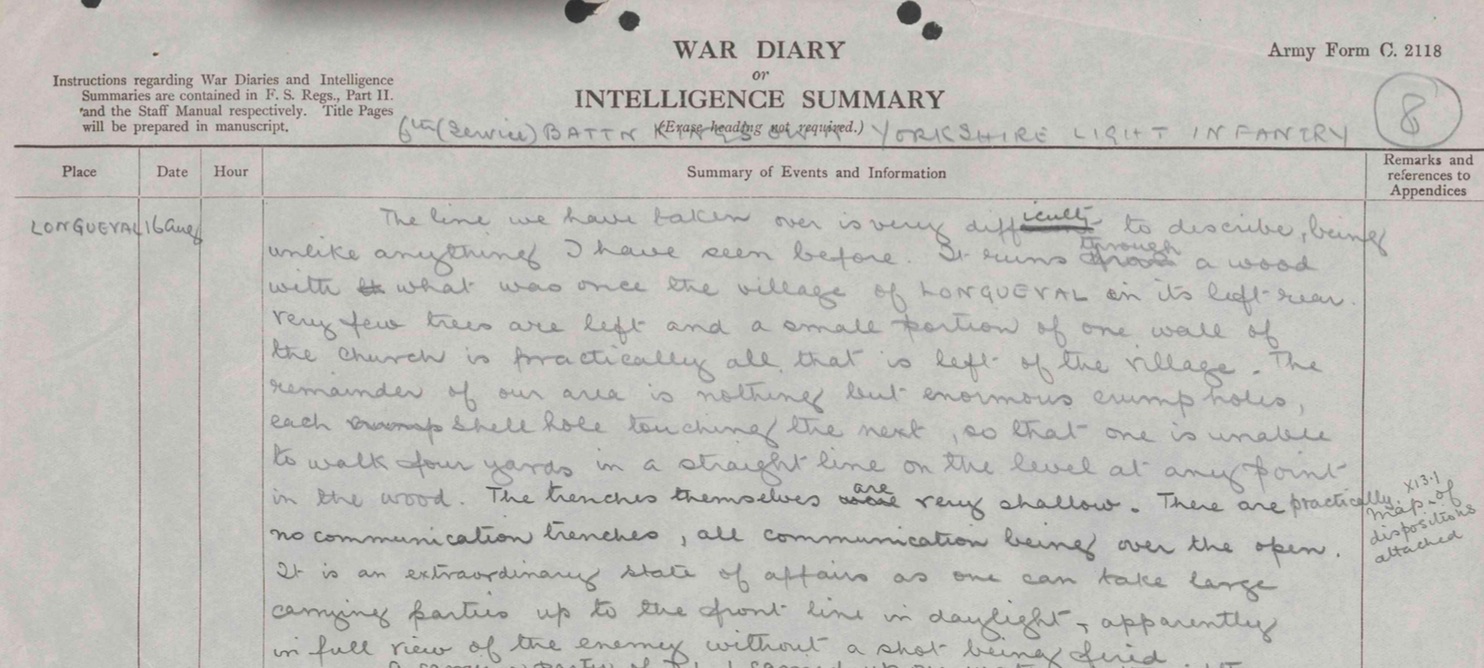 WAR DIARY
or
INTELLIGENCE SUMMARY
(Erase heading not required.)
Army Form C. 2118
Instructions regarding War Diaries and Intelligence
Summaries are contained in F. S. Regs., Part II.
and the Staff Manual respectively. Title Pages
will be prepared in manuscript.
6th (Service) BATTN KINGS OWN YORKSHIRE LIGHT INFANTRY
8
Place Date Hour Summary of Events and Information Remarks and references to Appendices
LONGUEVAL 16 Aug
The line we have taken over is very difficult to describe, being
unlike anything I have seen before. It runs through a wood
with what was once the village of LONGUEVAL in its left rear.
Very few trees are left and a small portion of one wall of
the church is practically all that is left of the village. The
remainder of our area is nothing but enormous crump holes,
each crump shell hole touching the next, so that one is unable
to walk four yards in a straight line on the level at any point
in the wood. The trenches themselves are very shallow. There are practically
no communication trenches, all communication being over the open.
It is an extraordinary state of affairs as one can take large
carrying parties up to the front line in daylight, apparently
in full view of the enemy without a shot being fired.
X13.1
Map of
dispositions
attached